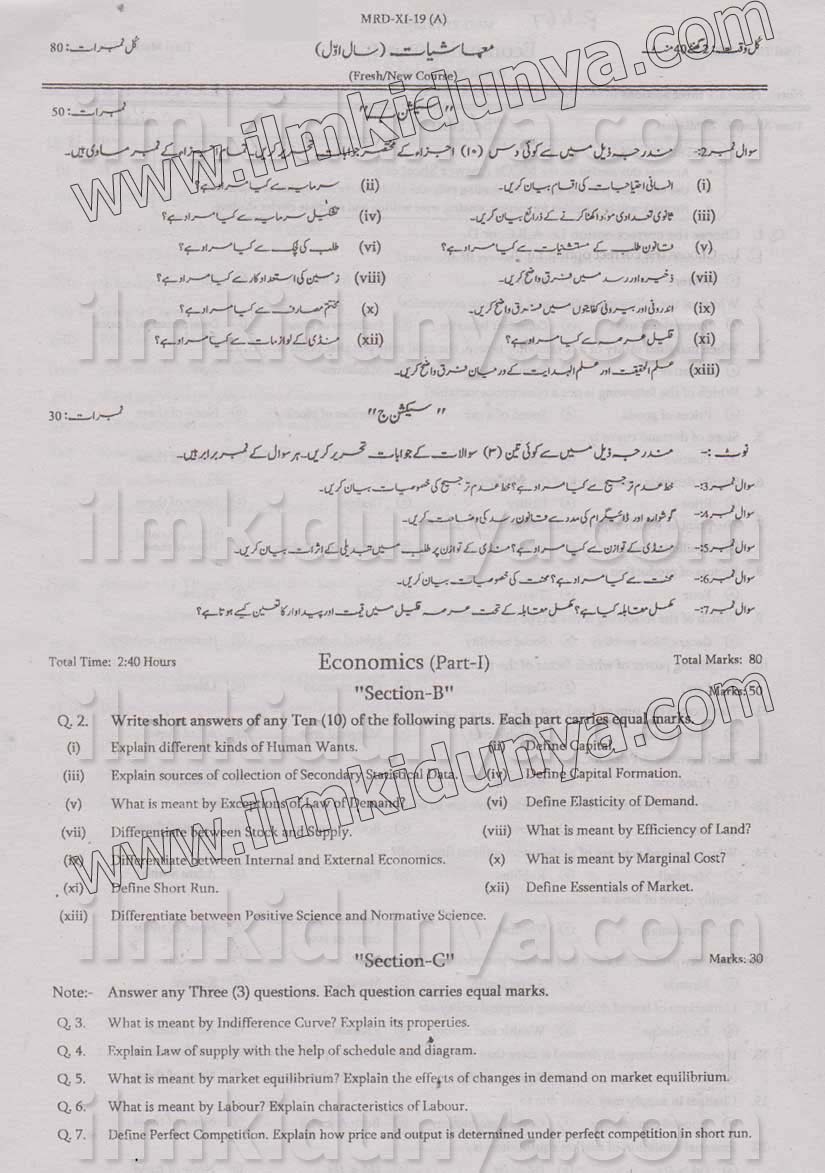 MRD-XI-19 (A)
کل وقت: 2 گھنٹے 40 منٹ معاشیات (سال اوّل) کل نمبرات: 80
(Fresh/New Course)
"سیکشن ب" نمبرات: 50
سوال نمبر 2:- مندرجہ ذیل میں سے کوئی دس (۱۰) اجزاء کے مختصر جوابات تحریر کریں۔ تمام اجزاء کے نمبر مساوی ہیں۔
(i) انسانی احتیاجات کی اقسام بیان کریں۔ (ii) سرمایہ سے کیا مراد ہے؟
(iii) ثانوی تعدادی مواد اکٹھا کرنے کے ذرائع بیان کریں۔ (iv) تشکیل سرمایہ سے کیا مراد ہے؟
(v) قانون طلب کے مستثنیات سے کیا مراد ہے؟ (vi) طلب کی لچک سے کیا مراد ہے؟
(vii) ذخیرہ اور رسد میں فرق واضح کریں۔ (viii) زمین کی استعداد کار سے کیا مراد ہے؟
(ix) اندرونی اور بیرونی کفایتوں میں فرق واضح کریں۔ (x) مختتم مصارف سے کیا مراد ہے؟
(xi) قلیل عرصہ سے کیا مراد ہے؟ (xii) منڈی کے لوازمات سے کیا مراد ہے؟
(xiii) علم الحقیقت اور علم الہدایت کے درمیان فرق واضح کریں۔
"سیکشن ج" نمبرات: 30
نوٹ:- مندرجہ ذیل میں سے کوئی تین (۳) سوالات کے جوابات تحریر کریں۔ ہر سوال کے نمبر برابر ہیں۔
سوال نمبر 3:- خط عدم ترجیح سے کیا مراد ہے؟ خط عدم ترجیح کی خصوصیات بیان کریں۔
سوال نمبر 4:- گوشوارہ اور ڈائیگرام کی مدد سے قانون رسد کی وضاحت کریں۔
سوال نمبر 5:- منڈی کے توازن سے کیا مراد ہے؟ منڈی کے توازن پر طلب میں تبدیلی کے اثرات بیان کریں۔
سوال نمبر 6:- محنت سے کیا مراد ہے؟ محنت کی خصوصیات بیان کریں۔
سوال نمبر 7:- مکمل مقابلہ کیا ہے؟ مکمل مقابلہ کے تحت عرصہ قلیل میں قیمت اور پیداوار کا تعین کیسے ہوتا ہے؟
Total Time: 2:40 Hours Economics (Part-I) Total Marks: 80
"Section-B" Marks: 50
Q. 2. Write short answers of any Ten (10) of the following parts. Each part carries equal marks.
(i) Explain different kinds of Human Wants. (ii) Define Capital.
(iii) Explain sources of collection of Secondary Statistical Data. (iv) Define Capital Formation.
(v) What is meant by Exceptions of Law of Demand? (vi) Define Elasticity of Demand.
(vii) Differentiate between Stock and Supply. (viii) What is meant by Efficiency of Land?
(ix) Differentiate between Internal and External Economics. (x) What is meant by Marginal Cost?
(xi) Define Short Run. (xii) Define Essentials of Market.
(xiii) Differentiate between Positive Science and Normative Science.
"Section-C" Marks: 30
Note:- Answer any Three (3) questions. Each question carries equal marks.
Q. 3. What is meant by Indifference Curve? Explain its properties.
Q. 4. Explain Law of supply with the help of schedule and diagram.
Q. 5. What is meant by market equilibrium? Explain the effects of changes in demand on market equilibrium.
Q. 6. What is meant by Labour? Explain characteristics of Labour.
Q. 7. Define Perfect Competition. Explain how price and output is determined under perfect competition in short run.
www.ilmkidunya.com
ilmkidunya.com
ilmkidunya.com
ilmkidunya.com
www.ilmkidunya.com
ilmkidunya.com
ilmkidunya.com